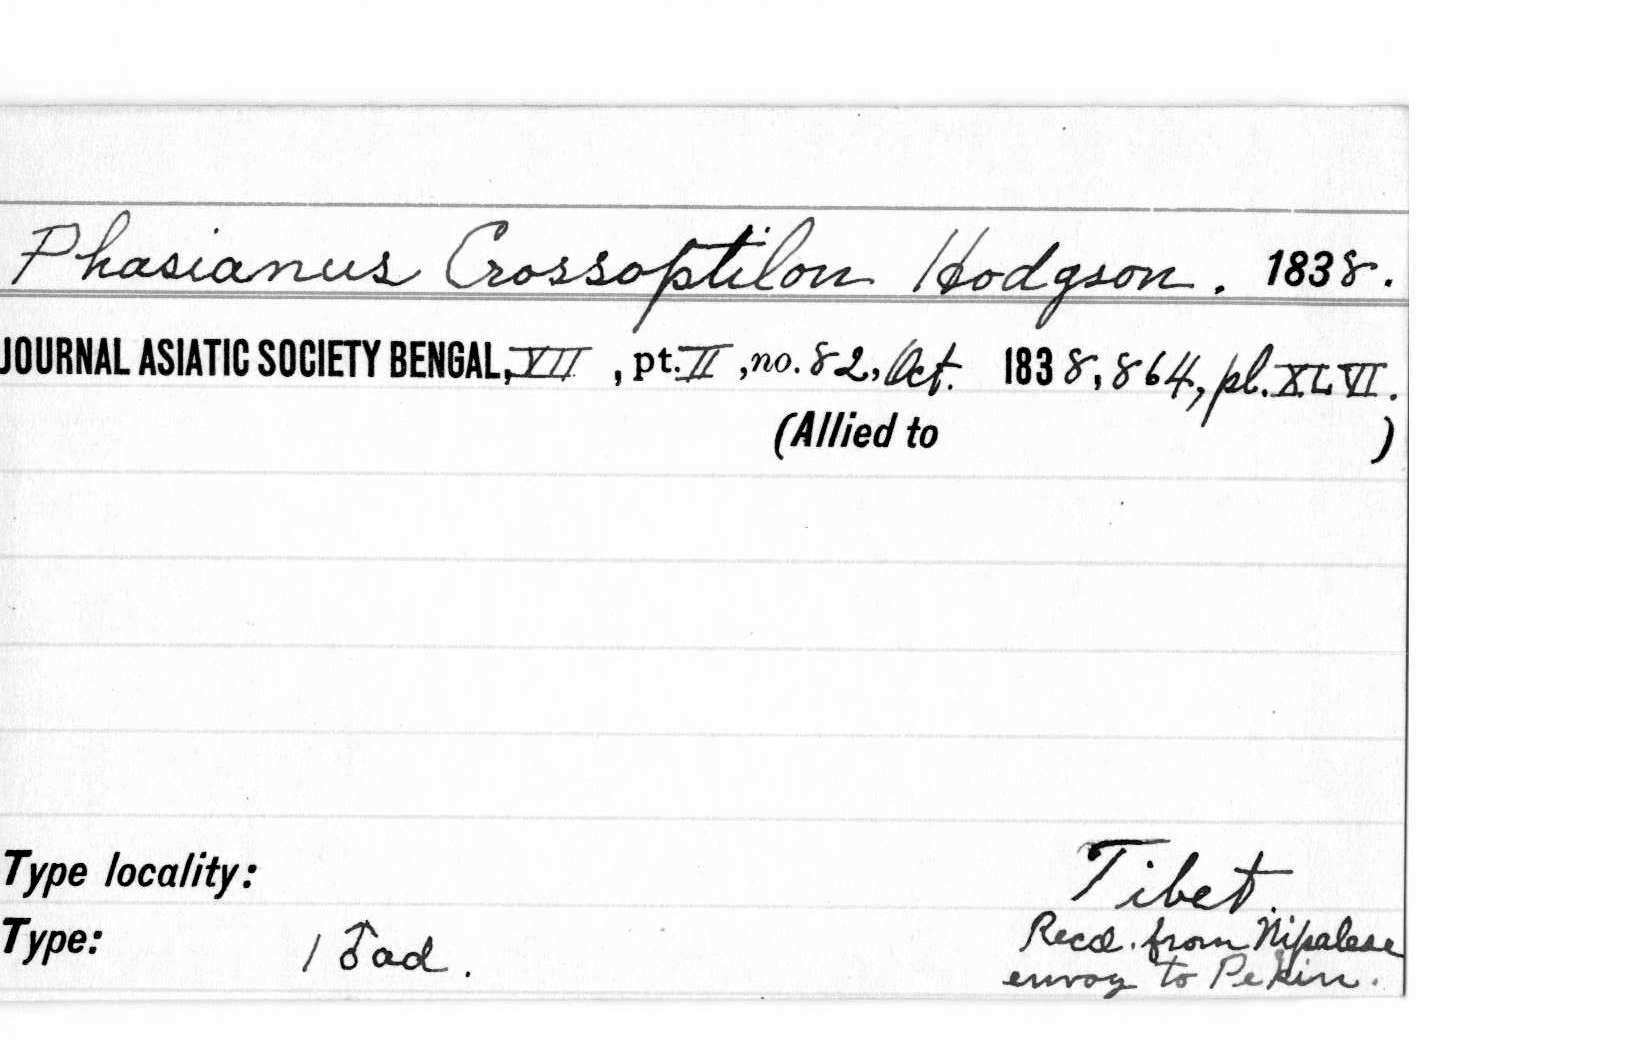 Phasianus Crossoptilon Hodgson. 1838.
JOURNAL ASIATIC SOCIETY BENGAL, VII, pt. II, no. 82, Oct. 1838, 864, pl. XLVI.
(Allied to )
Type locality: Tibet.
Type: 1 ♂ ad. Recd. from Nipalese
envoy to Pekin.